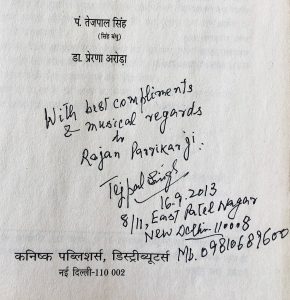 पं. तेजपाल सिंह
(सिंह बंधु)
डा. प्रेरणा अरोड़ा
With best compliments
& musical regards
to
Rajan Parrikar ji.
Tejpal Singh
16.9.2013
8/11, East Patel Nagar
New Delhi 110008
Mb. 09810689600
कनिष्क पब्लिशर्स, डिस्ट्रीब्यूटर्स
नई दिल्ली-110 002